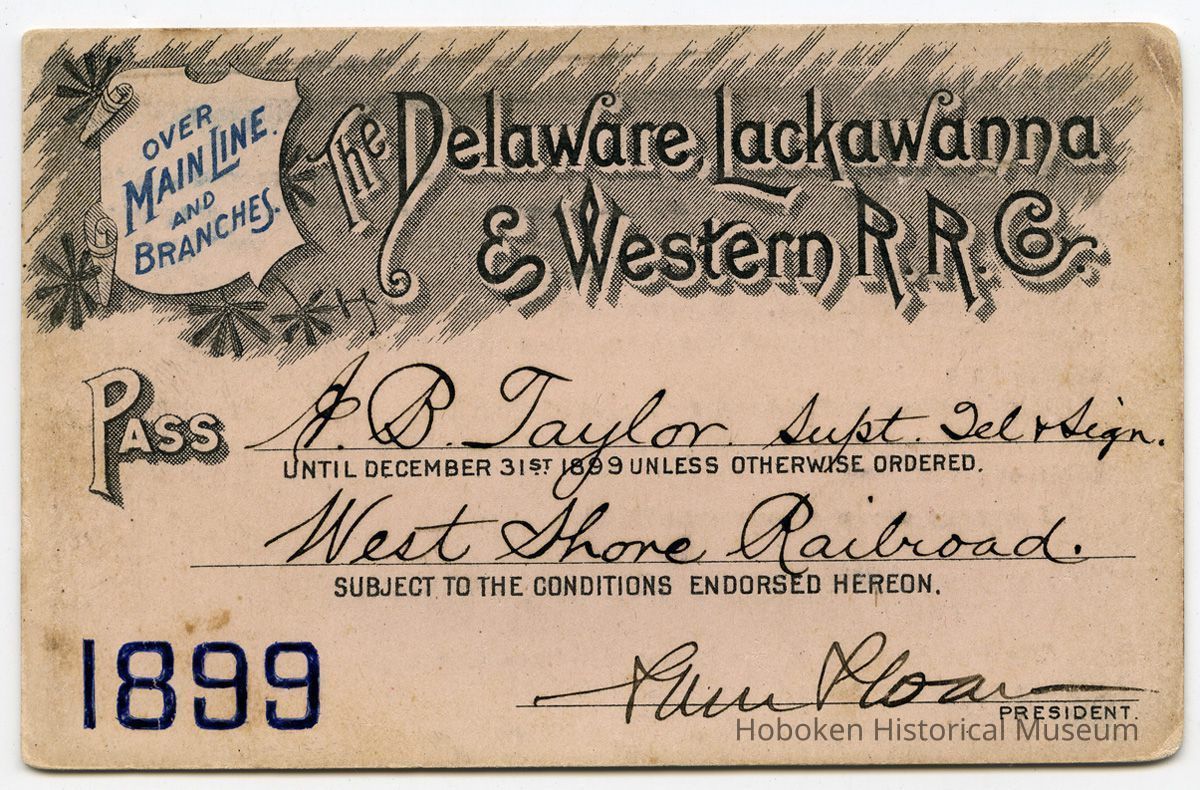 OVER
MAIN LINE.
AND
BRANCHES.
The Delaware, Lackawanna
& Western R.R. Co.
PASS J. B. Taylor. Supt. Tel & Sign.
UNTIL DECEMBER 31ST 1899 UNLESS OTHERWISE ORDERED.
West Shore Railroad.
SUBJECT TO THE CONDITIONS ENDORSED HEREON.
1899
Sam Sloan
PRESIDENT.
Hoboken Historical Museum